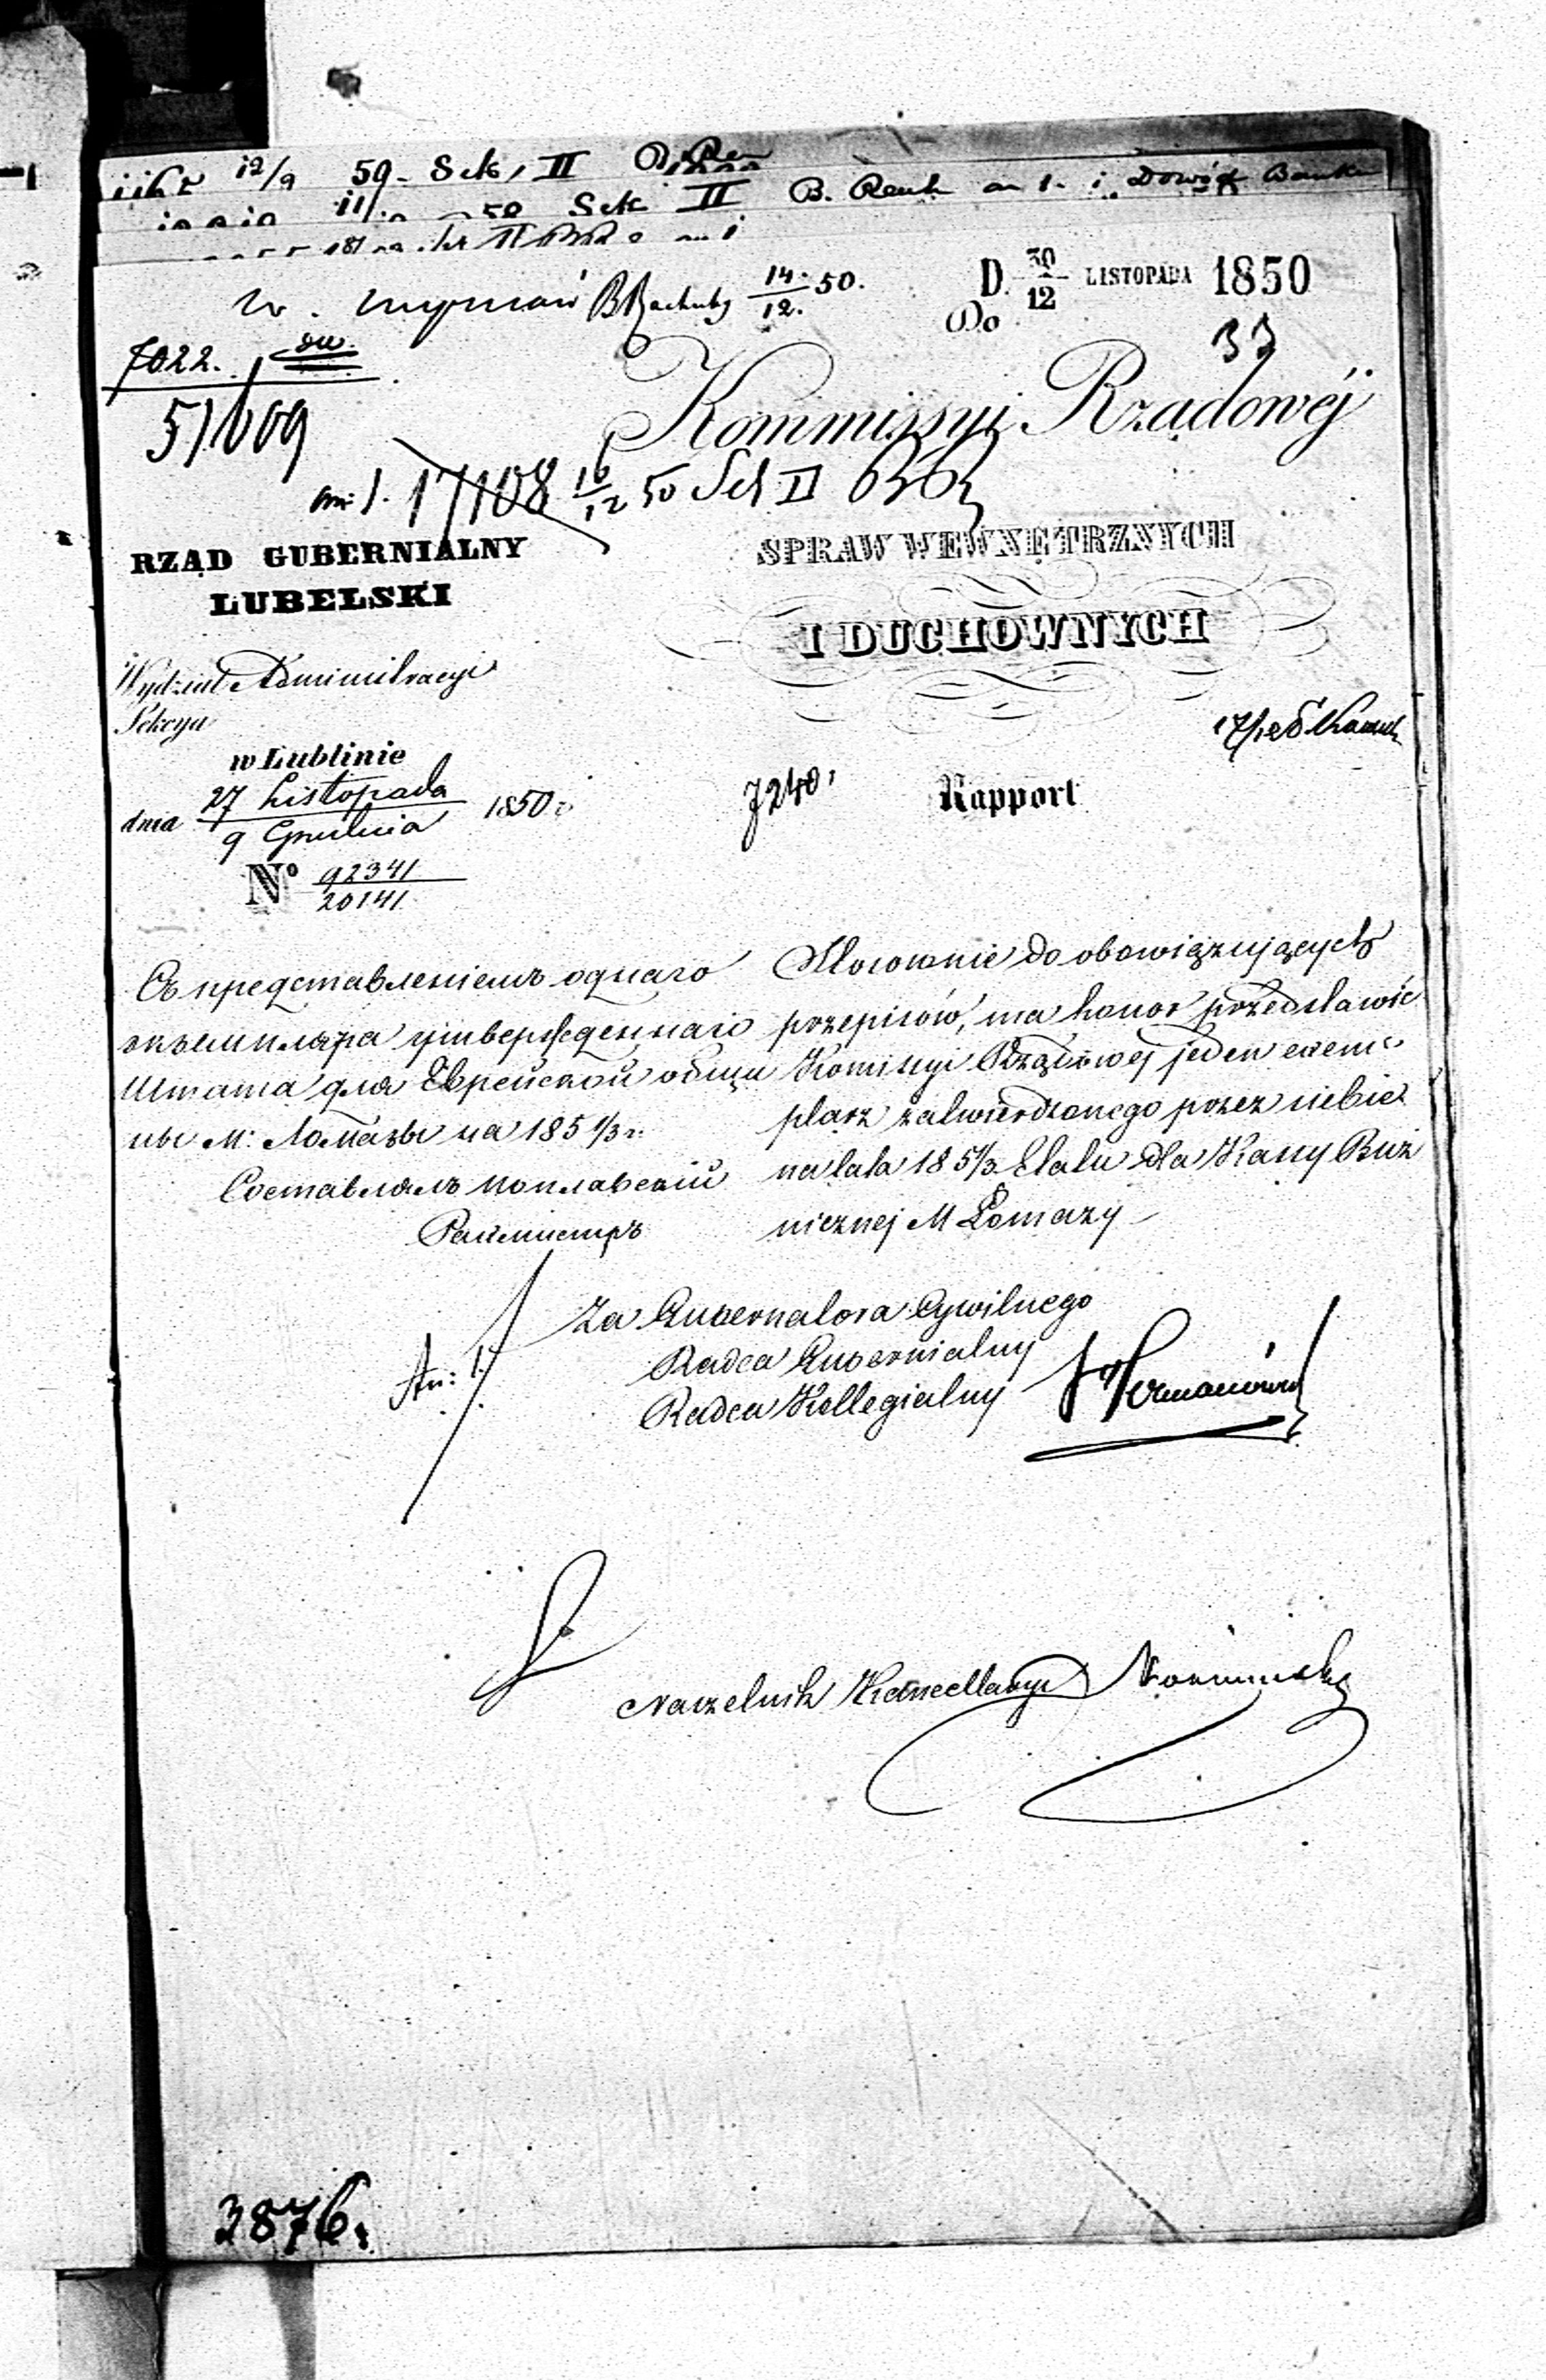 12/9 59 Sek. II
11/10 58 Sek II B. Rach an 1. i Dowód Banku
D. 30/12 LISTOPADA 1850
14/12 50.
Do
33
7022.
51009
Kommissyi Rządowéj
an: 1. 17108 16/12 50 Sek II
RZĄD GUBERNIALNY
LUBELSKI
SPRAW WEWNĘTRZNYCH
I DUCHOWNYCH
Wydział Administracyi
Sekcya
w Lublinie
dnia 27 Listopada / 9 Grudnia 1850 r.
No 92341 / 20141
7240
Rapport
Съ представленіемъ одного
экземпляра утвержденнаго
Штата для Еврейской общи
ны М: Ломазы на 1851/3 г.
Составлялъ Поплавскій
Stosownie do obowiązujących
przepisów, ma honor przedstawić
Komissyi Rządowej jeden exem
plarz zatwierdzonego przez siebie
na lata 1851/3 Etatu dla Kassy Buż
nicznej M Łomazy
Za Gubernatora Cywilnego
Radca Gubernialny
Radca Kollegialny
An: 1.
Naczelnik Kancellaryi
3876.